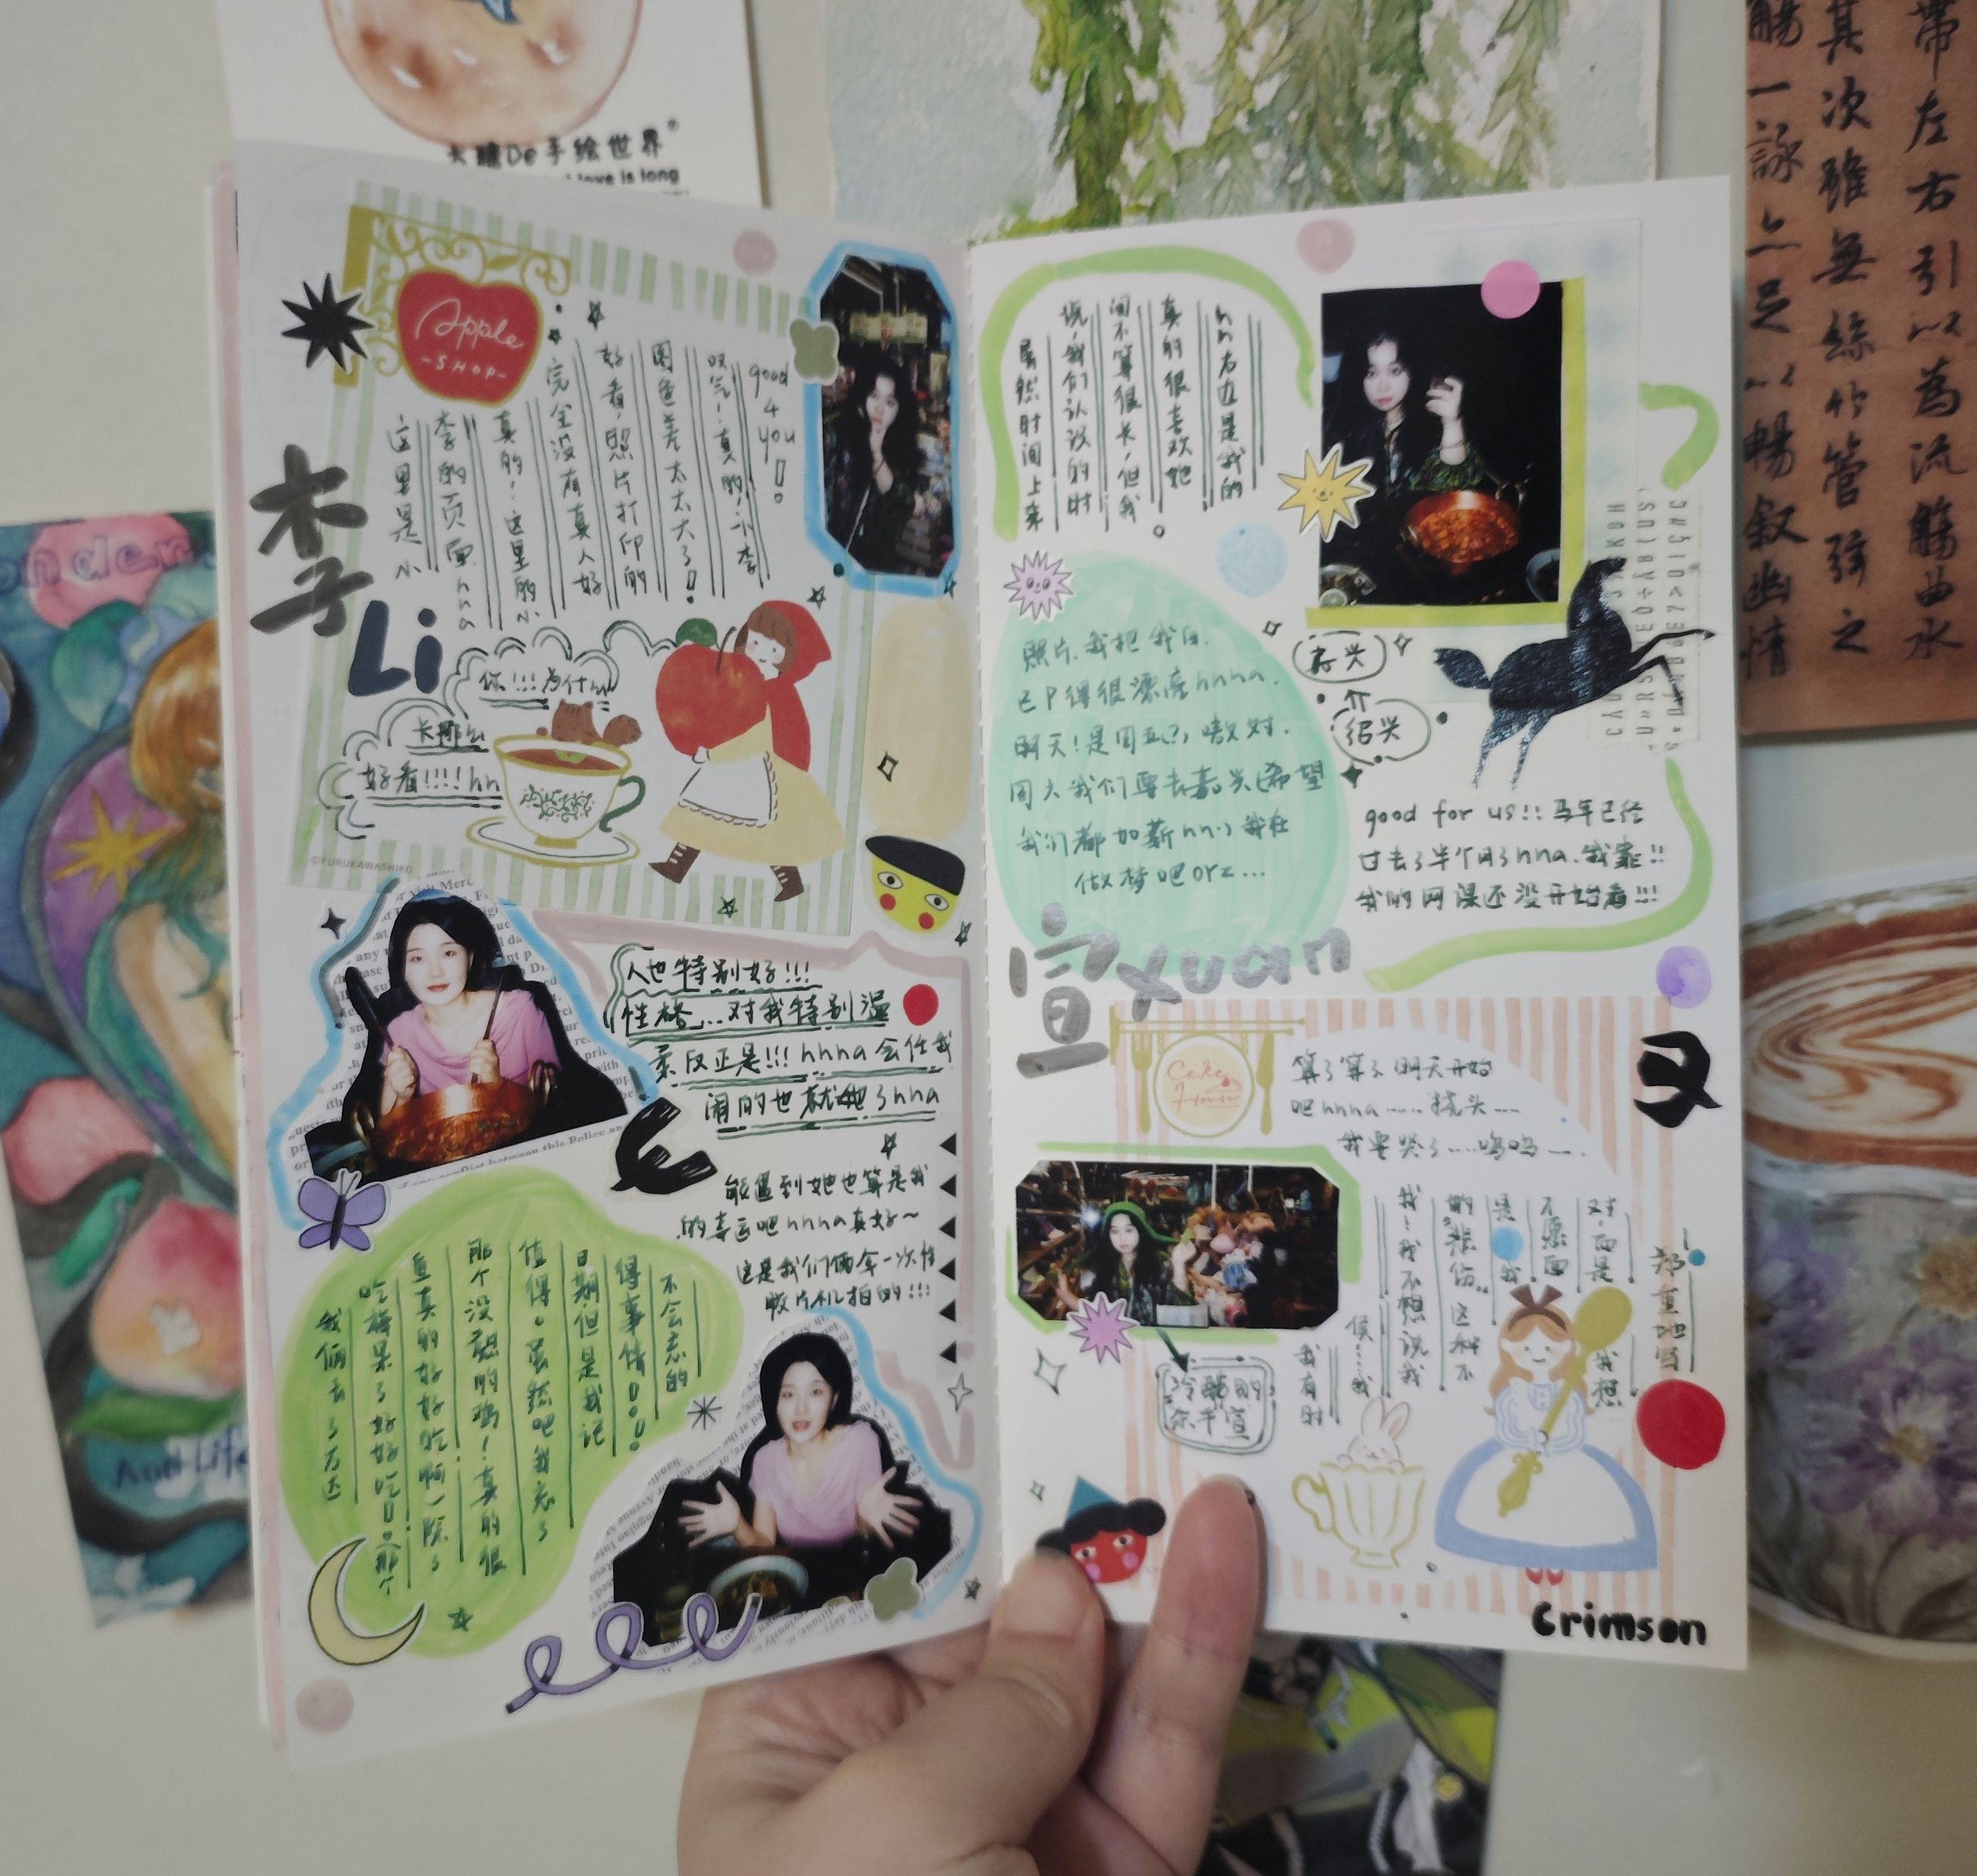 手绘世界
love is long
Apple
-SHOP-
李子
Li
这里是小
李的页面hhha
真的！这里的小
完全没有真人好
好看，照片打印的
图色差太太大了！
哎气！真的！小李
good
4
you
!
你!!!为什么
卡那么
好看!!!!hh
©FURUKAWASHIKO
人也特别好!!!
性格...对我特别温
柔反正是!!! hhha 会任我
闹的也就她了hhha
能遇到她也算是我
的幸运吧hhha真好～
这是我们俩拿一次性
胶片机拍的!!!
我俩去了
重真的好好吃啊一除了
那个没熟的鸡！真的很
值得。虽然吧我忘了
日期，但是我记
得事情!!!
不会忘的
hh右边是我的
真的很喜欢她
间不算很长，但我
说，我们认识的时
虽然时间上来
照片，我把我自
己P得很漂亮hhha.
明天！是周五？，嗷对.
周六我们要去嘉兴(希望
我们都加薪hh) 我在
做梦吧orz...
嘉兴
绍兴
good for us!! 马年已经
过去了半个月了hha.我靠!!
我的网课还没开始看!!!
宣
xuan
Cake
House
算了算了明天开始
吧hhha......挠头...
我要哭了....呜呜...
郑重地写
对，而是
不愿面
是我
的悲伤..这种不
我：我不想说我
我想
我有时
候......我
冷酷的
余千宣
又
Crimson
带左右引以為流觴曲水
其次雖無絲竹管弦之
觴一詠亦足以暢叙幽情